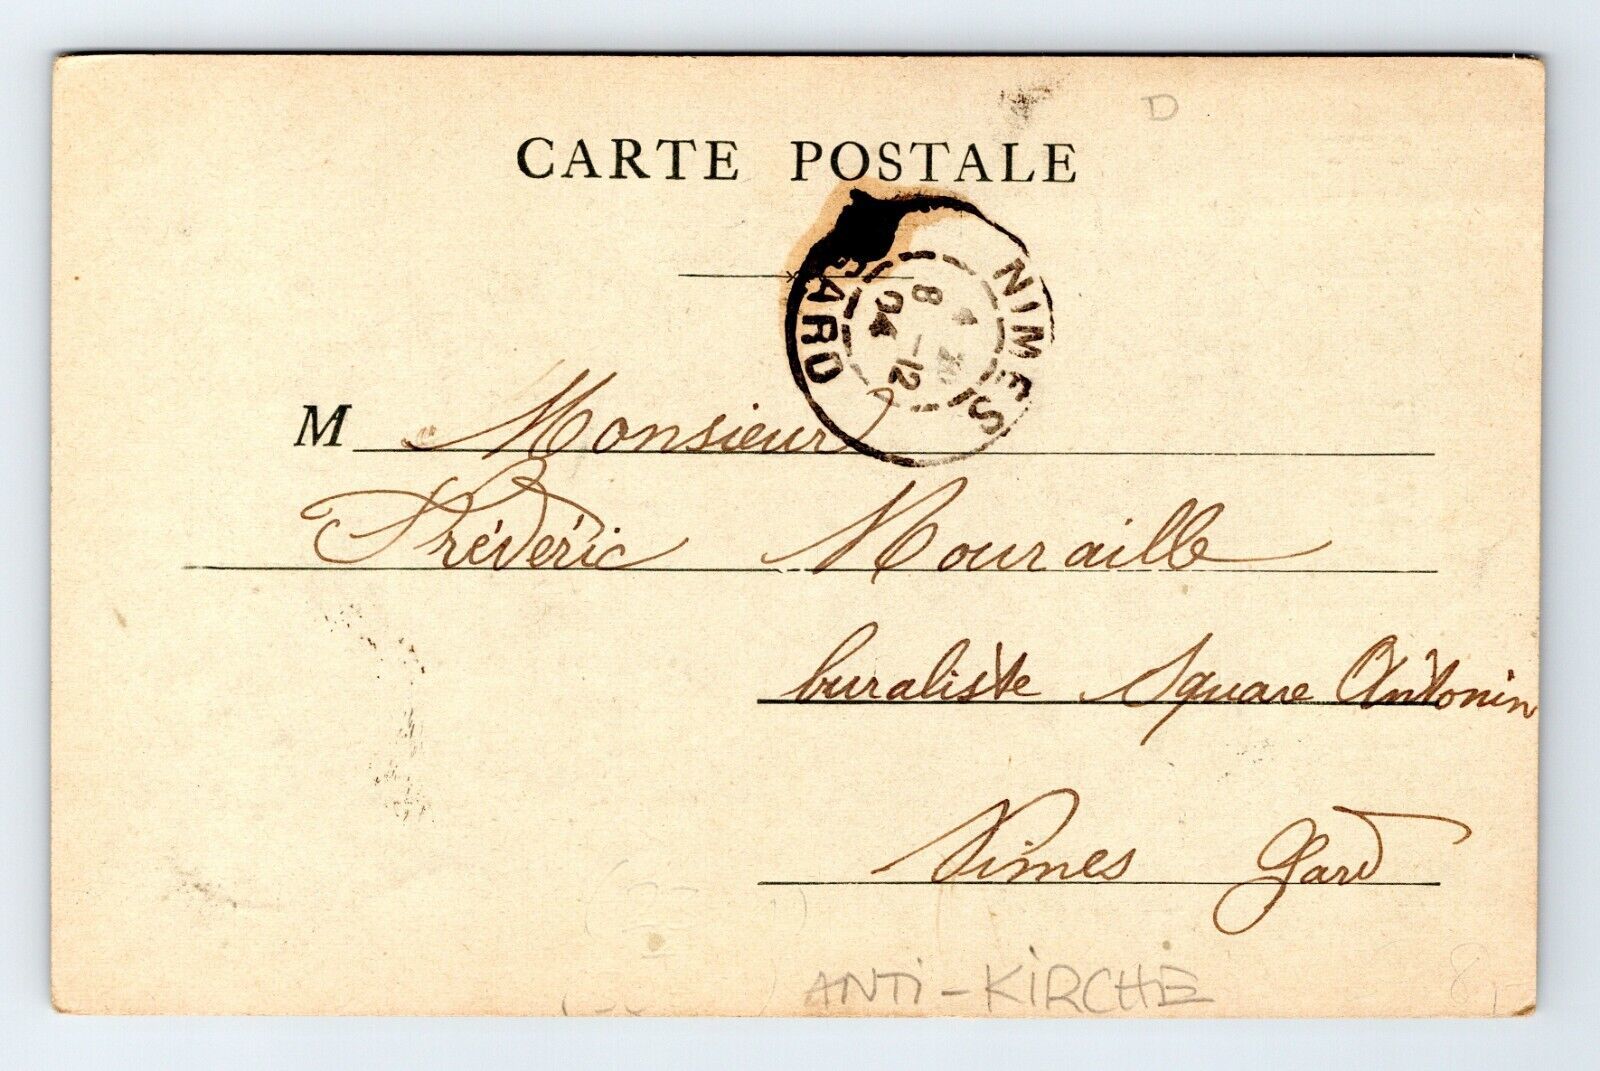 D
CARTE POSTALE
NIMES
GARD
8 -12
04
M Monsieur
Frédéric Mouraille
buraliste Square Antonin
Nimes Gard
ANTI-KIRCHE
8,-